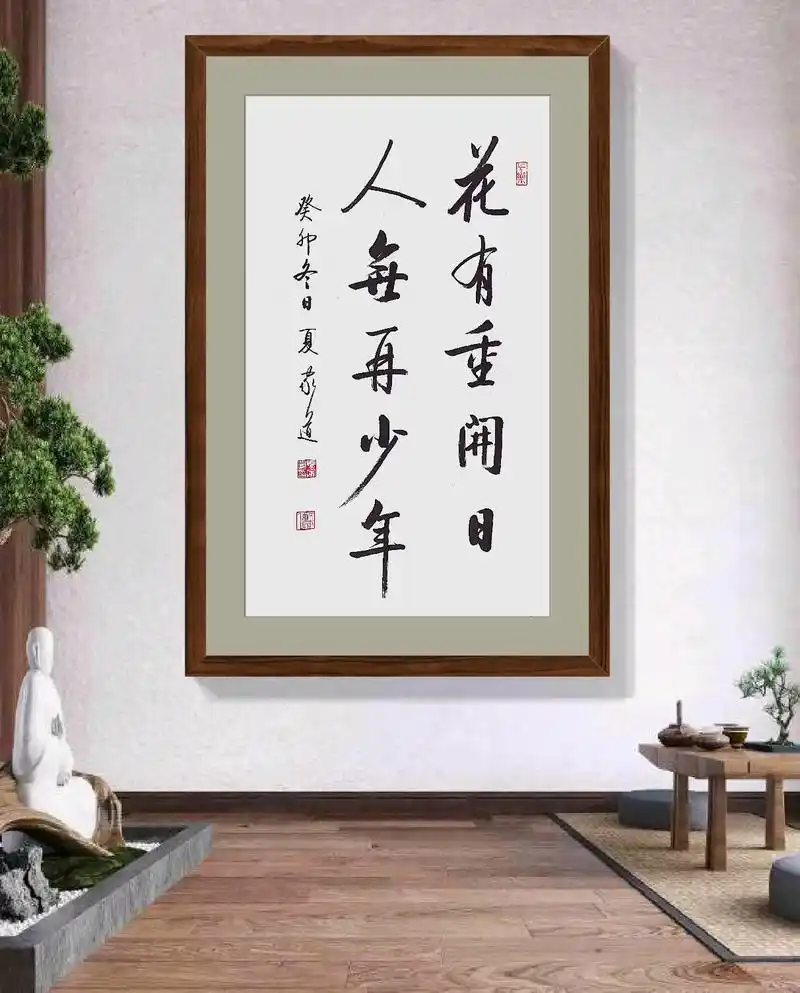 花有重開日
人無再少年
癸卯冬日 夏家道